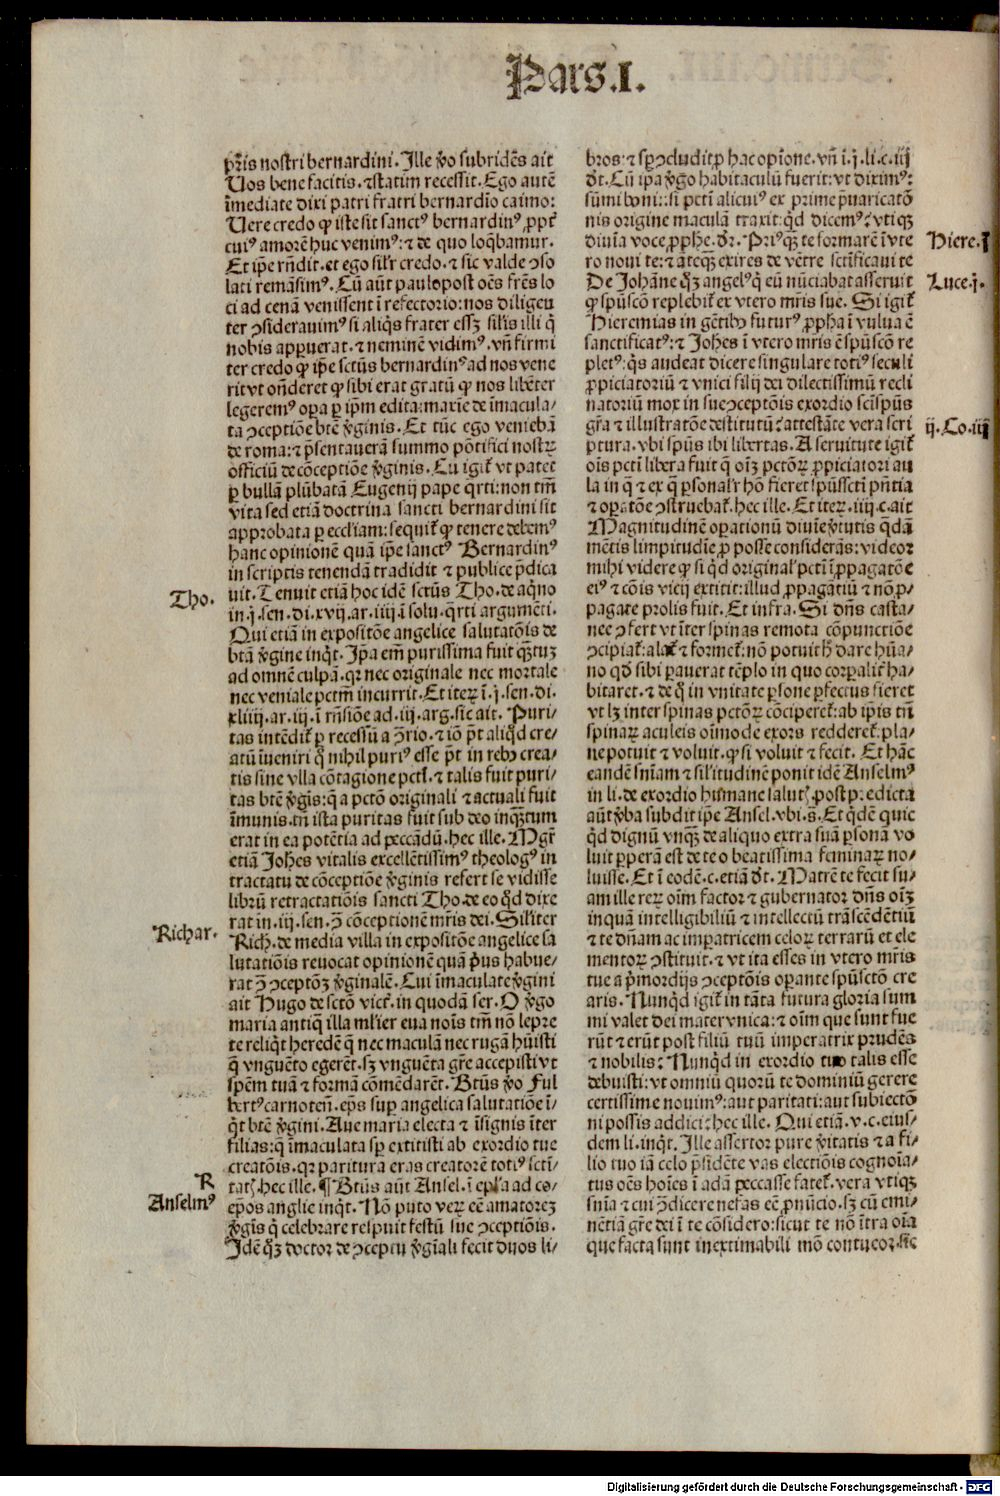 Pars.I.
pr̄is nostri bernardini. Ille ꝟo subridēs ait
Vos bene facitis. ⁊ statim recessit. Ego autē
īmediate dixi patri fratri bernardio caimo:
Vere credo ꝙ iste sit sanctꝰ bernardinꝰ ꝓpt̄
cuiꝰ amorē huc venimꝰ: ⁊ de quo loq̄bamur.
Et ip̄e rn̄dit. et ego sil̄r credo. ⁊ sic valde ꝯso
lati remāsimꝰ. Cū aūt paulopost oēs fr̄es lo
ci ad cenā venissent ī refectorio: nos diligen
ter ꝯsiderauimꝰ si aliq̄s frater essꝫ sil̄is illi q̄
nobis apꝑuerat. ⁊ neminē vidimꝰ. vn̄ firmi
ter credo ꝙ ip̄e sct̄us bernardinꝰ ad nos vene
rit vt on̄deret ꝙ sibi erat gratū ꝙ nos libēter
legeremꝰ oꝑa ꝑ ip̄m edita: maxīe de īmacula⸗
ta ꝯceptiōe bt̄e ꝟginis. Et tūc ego veniebā
de roma: ⁊ p̄sentauerā summo pōtifici nostrꝝ
officiū de cōceptiōe ꝟginis. Cū igit̄ vt patet
ꝑ bullā plūbatā Eugenij pape q̄rti: non tm̄
vita sed etiā doctrina sancti bernardini sit
approbata ꝑ eccl̄iam: sequit̄ ꝙ tenere debemꝰ
hanc opinionē quā ip̄e sanctꝰ Bernardinꝰ
in scriptis tenendā tradidit ⁊ publice p̄dica
uit. Tenuit etiā hoc idē sct̄us Tho. de aq̄no
in .j. sen. di. xvij. ar. iiij. ī solu. q̄rti argumēti.
Qui etiā in expositōe angelice salutatōis de
bt̄a ꝟgine inq̄t. Ip̄a em̄ purissima fuit q̄ꝫtuꝫ
ad omnē culpā. qꝛ nec originale nec mortale
nec veniale pctm̄ incurrit. Et iteꝝ ī .j. sen. di.
xliiij. ar. iij. ī rn̄siōe ad .iij. arg. sic ait. Puri⸗
tas intēdit̄ ꝑ recessū a ꝯ̄rio. ⁊ iō pt̄ aliq̄d cre⸗
atū īueniri q̄ nihil puriꝰ esse pt̄ in rebꝰ crea⸗
tis sine vlla cōtagione pcti. ⁊ talis fuit puri⸗
tas bt̄e ꝟgīs: q̄ a pctō originali ⁊ actuali fuit
īmunis. tn̄ ista puritas fuit sub deo inq̄ꝫtum
erat in ea potētia ad peccādū. hec ille. Mgr̄
etiā Joh̄es vitalis excellētissimꝰ theologꝰ in
tractatu de cōceptiōe ꝟginis refert se vidisse
librū retractatiōis sancti Tho. de eo qd̄ dixe
rat in .iij. sen. ꝯ̄ cōceptionē mr̄is dei. Sil̄iter
Rich. de media villa in expositōe angelice sa
lutatiōis reuocat opinionē quā p̄us habue⸗
rat ꝯ̄ ꝯceptōꝫ ꝟginalē. Cui īmaculate ꝟgini
ait Hugo de sctō vict̄. in quodā ser. O ꝟgo
maria antiq̄ illa ml̄ier eua nois̄ tm̄ nō lepre
te reliq̄t heredē q̄ nec maculā nec rugā hūisti
q̄ vnguēto egerēt. sꝫ vnguēta gr̄e accepisti vt
spēm tuā ⁊ formā cōmēdarēt. Bt̄us ꝟo Ful
bertꝰ carnoteñ. ep̄s suꝑ angelica salutatiōe ī⸗
q̄t bt̄e ꝟgini. Aue maria electa ⁊ īsignis īter
filias: q̄ īmaculata sp̄ extitisti ab exordio tue
creatōis. qꝛ paritura eras creatorē totiꝰ scti⸗
tat̄. hec ille. ¶ Bt̄us aūt Ansel. ī ep̄la ad co⸗
ep̄os anglie inq̄t. Nō puto veꝝ eē amatoreꝫ
ꝟgīs q̄ celebrare respuit festū sue ꝯceptiōis.
Idē qꝫ doctor de ꝯceptu ꝟgīali fecit duos li⸗
Tho.
Richar.
R
Anselmꝰ
bros: ⁊ sp̄ ꝯcludit ꝑ hac opīone. vn̄ ī .j. li. c. iij
dt̄. Cū ip̄a ꝟgo habitaculū fuerit: vt diximꝰ:
sūmi boni:: si pcti alicuiꝰ ex prime p̄uaricatō
nis origine maculā traxit: qd̄ dicemꝰ? vtiqꝫ
diuīa voce ꝓphe. dr̄. Priꝰq̄ꝫ te formarē ī vte
ro noui te: ⁊ āteq̄ꝫ exires de vētre sct̄ificaui te
De Johāne qꝫ angelꝰ q̄ eū nūciabat asseruit
ꝙ spūscō replebit̄ ex vtero mr̄is sue. Si igit̄
Hieremias in gētibꝰ futurꝰ ꝓpha ī vulua ē
sanctificatꝰ: ⁊ Joh̄es ī vtero mr̄is ē spūscō re
pletꝰ: q̄s audeat dicere singulare totiꝰ seculi
ꝓpiciatoriū ⁊ vnici filij dei dilectissimū recli
natoriū mox in sue ꝯceptōis exordio scī spūs
gr̄a ⁊ illustratōe destitutū? attestāte vera scri
ptura. vbi spūs ibi libertas. A seruitute igit̄
ois pcti libera fuit q̄ oīꝫ pctōꝝ ꝓpiciatori au
la in q̄ ⁊ ex q̄ ꝑsonal̄r hō fieret spūssctī p̄ntia
⁊ oꝑatōe ꝯstruebat̄. hec ille. Et iteꝝ .iiij. c. ait
Magnitudinē oꝑationū diuīe ꝟtutis q̄dā
mētis limpitudīe ꝓ posse cōsiderās: videor
mihi videre ꝙ si qd̄ original̄ pctī ī ꝓpagatōe
eiꝰ ⁊ cōis vicij extitit: illud ꝓpagātiū ⁊ nō ꝓ⸗
pagate prolis fuit. Et infra. Si dn̄s casta⸗
nee ꝯfert vt īter spinas remota cōpunctiōe
ꝯcipiat̄: alat̄ ⁊ formet̄: nō potuit dare hūa⸗
no qd̄ sibi ꝑauerat tēplo in quo corꝑalit̄ ha⸗
bitaret. ⁊ de q̄ in vnitate ꝑsone ꝑfectus fieret
vt lꝫ inter spinas pctōꝝ cōciperet̄: ab ip̄is tn̄
spinaꝝ aculeis oīmode exors redderet̄: pla⸗
ne potuit ⁊ voluit. ꝙ si voluit ⁊ fecit. Et hāc
eandē sn̄iam ⁊ sil̄itudinē ponit idē Anselmꝰ
in li. de exordio humane salut̄. post p̄edicta
aūt ꝟba subdit ip̄e Ansel. vbi .s̄. Et qd̄e quic
qd̄ dignū vnq̄ꝫ de aliquo extra suā ꝑsonā vo
luit ꝑperā est de te o beatissima feminaꝝ no⸗
luisse. Et ī eodē. c. etiā dt̄. Matrē te fecit su⸗
am ille reꝝ oīm factor ⁊ gubernator dn̄s oīꝫ
inquā intelligibiliū ⁊ intellectū trāscēdētiū
⁊ te dn̄am ac imꝑatricem celoꝝ terrarū et ele
mentoꝝ ꝯstituit. ⁊ vt ita esses in vtero mr̄is
tue a p̄mordijs ꝯceptōis oꝑante spūsctō cre
aris. Nunqd̄ igit̄ in tāta futura gloria sum
mi valet dei mater vnica: ⁊ oīm que sunt fue
rūt ⁊ erūt post filiū tuū imperatrix prudēs
⁊ nobilis? Nunqd̄ in exordio tuo talis esse
debuisti: vt omniū quorū te dominiū gerere
certissime nouimꝰ: aut paritati: aut subiectō
ni possis addici: hec ille. Qui etiā .v. c. eius⸗
dem li. inq̄t. Ille assertor pure ꝟitatis ⁊ a fi⸗
lio tuo iā celo p̄sidēte vas electiōis cognoīa⸗
tus oēs hoīes ī adā peccasse fatet̄. vera vtiqꝫ
sn̄ia ⁊ cui ꝯ̄dicere nefas eē ꝓnūcio. sꝫ cū emi⸗
nētiā gr̄e dei ī te cōsidero: sicut te nō ītra oīa
que facta sunt inextimabili mō contueor. sic
Hiere.j
Luce.j.
ij. Co. iij
Digitalisierung gefördert durch die Deutsche Forschungsgemeinschaft - DFG